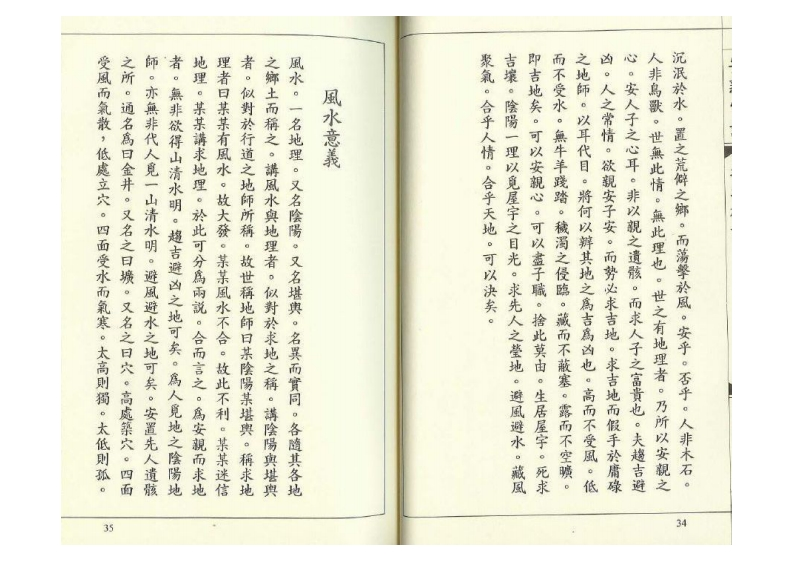 沉泯於水。置之荒僻之鄉。而蕩擊於風。安乎。否乎。人非木石。
人非鳥獸。世無此情。無此理也。世之有地理者。乃所以安親之
心。安人子之心耳。非以親之遺骸。而求人子之富貴也。夫趨吉避
凶。人之常情。欲親安子安。而勢必求吉地。求吉地而假手於庸碌
之地師。以耳代目。將何以辨其地之為吉為凶也。高而不受風。低
而不受水。無牛羊踐踏。穢濁之侵臨。藏而不蔽塞。露而不空曠。
即吉地矣。可以安親心。可以盡子職。捨此莫由。生居屋宇。死求
吉壤。陰陽一理以覓屋宇之目光。求先人之塋地。避風避水。藏風
聚氣。合乎人情。合乎天地。可以決矣。
34
風水意義
風水。一名地理。又名陰陽。又名堪輿。名異而實同。各隨其各地
之鄉土而稱之。講風水與地理者。似對於求地之稱。講陰陽與堪輿
者。似對於行道之地師所稱。故世稱地師曰某陰陽某堪輿。稱求地
理者曰某某有風水。故大發。某某風水不合。故此不利。某某迷信
地理。某某講求地理。於此可分為兩說。合而言之。為安親而求地
者。無非欲得山清水明。趨吉避凶之地可矣。為人覓地之陰陽地
師。亦無非代人覓一山清水明。避風避水之地可矣。安置先人遺骸
之所。通名為曰金井。又名之曰壙。又名之曰穴。高處築穴。四面
受風而氣散，低處立穴。四面受水而氣寒。太高則獨。太低則孤。
35